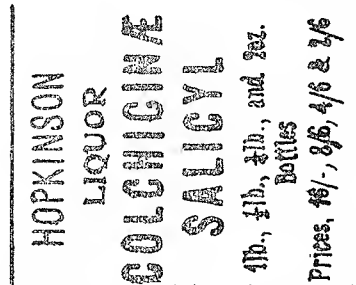 HOPKINSON
LIQUOR
COLCHICINÆ
SALICYL
1lb., ½lb., ¼lb., and 2oz.
Bottles
Prices, 16/-, 8/6, 4/6 & 2/6